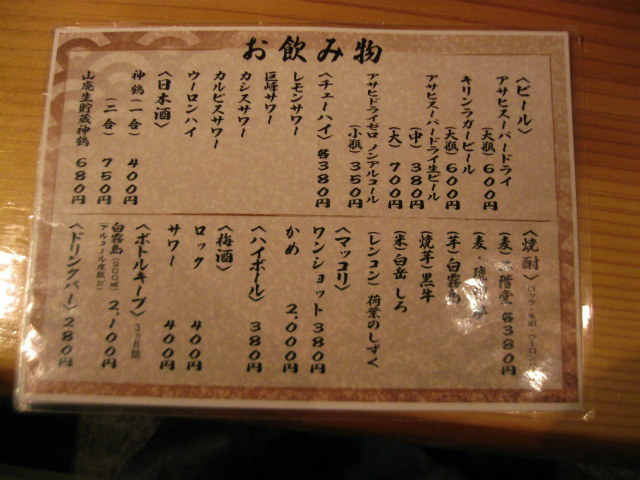 お飲み物
〈ビール〉
アサヒスーパードライ
(大瓶) 600円
キリンラガービール
(大瓶) 600円
アサヒスーパードライ生ビール
(中) 380円
(大) 700円
アサヒドライゼロ ノンアルコール
(小瓶) 350円
〈チューハイ〉 各380円
レモンサワー
巨峰サワー
カシスサワー
カルピスサワー
ウーロンハイ
〈日本酒〉
神鶴 (一合) 400円
(二合) 750円
山廃生貯蔵神鶴 680円
〈焼酎〉
(麦) 階堂 各380円
(麦)
(芋) 白霧島
(焼芋) 黒牛
(米) 白岳 しろ
(レンコン) 荷葉のしずく
〈マッコリ〉
ワンショット 380円
かめ 2,000円
〈ハイボール〉 380円
〈梅酒〉
ロック 400円
サワー 400円
〈ボトルキープ〉 3ヵ月間
白霧島 2,100円
〈ドリンクバー〉 280円